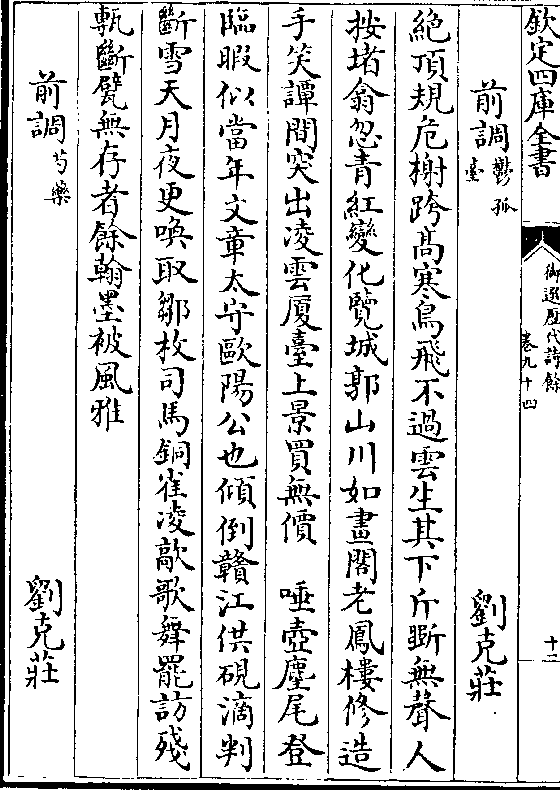 欽定四庫全書
御選歷代詩餘
卷九十四
十二
前調鬱孤臺
劉克莊
絶頂規危榭跨髙寒鳥飛不過雲生其下斤斲無聲人
按堵翁忽青紅變化覽城郭山川如畫閣老鳳樓修造
手笑譚間突出凌雲厦臺上景買無價　唾壺麈尾登
臨暇似當年文章太守歐陽公也傾倒贛江供硯滴判
斷雪天月夜更喚取鄒枚司馬銅雀凌歊歌舞罷訪殘
甎斷甓無存者餘翰墨被風雅
前調芍藥
劉克莊